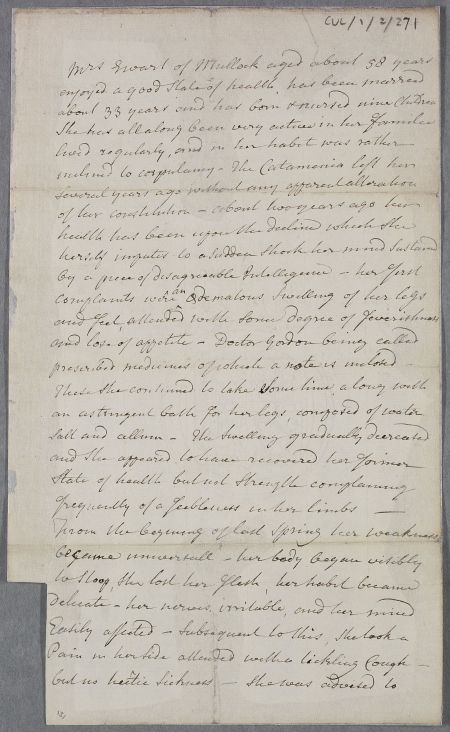 CUL/1/2/271
Mrs Ewart of Mullock aged about 58 years
enjoyed a good State of health, has been married
about 33 years and has born & nursed nine Children
She has all along been very active in her famelie
lived regularly, and in her habit was rather
inclined to corpulancy - The Catamenia left her
several years ago without any apparent alteration
of her constitution - about two years ago her
health has been upon the decline which She
herself imputes to a sudden Shock her mind Sustained
by a piece of disagreeable Intelligence - her first
complaints were an Œdematous Swelling of her legs
and feet, attended with Some degree of Feverishness
and loss of appetite - Doctor Gordon being called
prescribed medicines of which a note is inclosed -
These She continued to take Some time along with
an astringent bath for her legs composed of water
Salt and allum - The Swelling gradually decreased
and She appeared to have recovered her former
State of health but not Strength complaining
frequently of a feebleness in her limbs -
From the begining of last Spring her weakness
became universall - her body began visibly
to Stoop, She lost her flesh her habit became
Delicate - her nerves irritable, and her mind
Easily affected - Subsequent to this, She took a
Pain in her side attended with a tickling Cough -
but no hectic Sickness - She was advised to